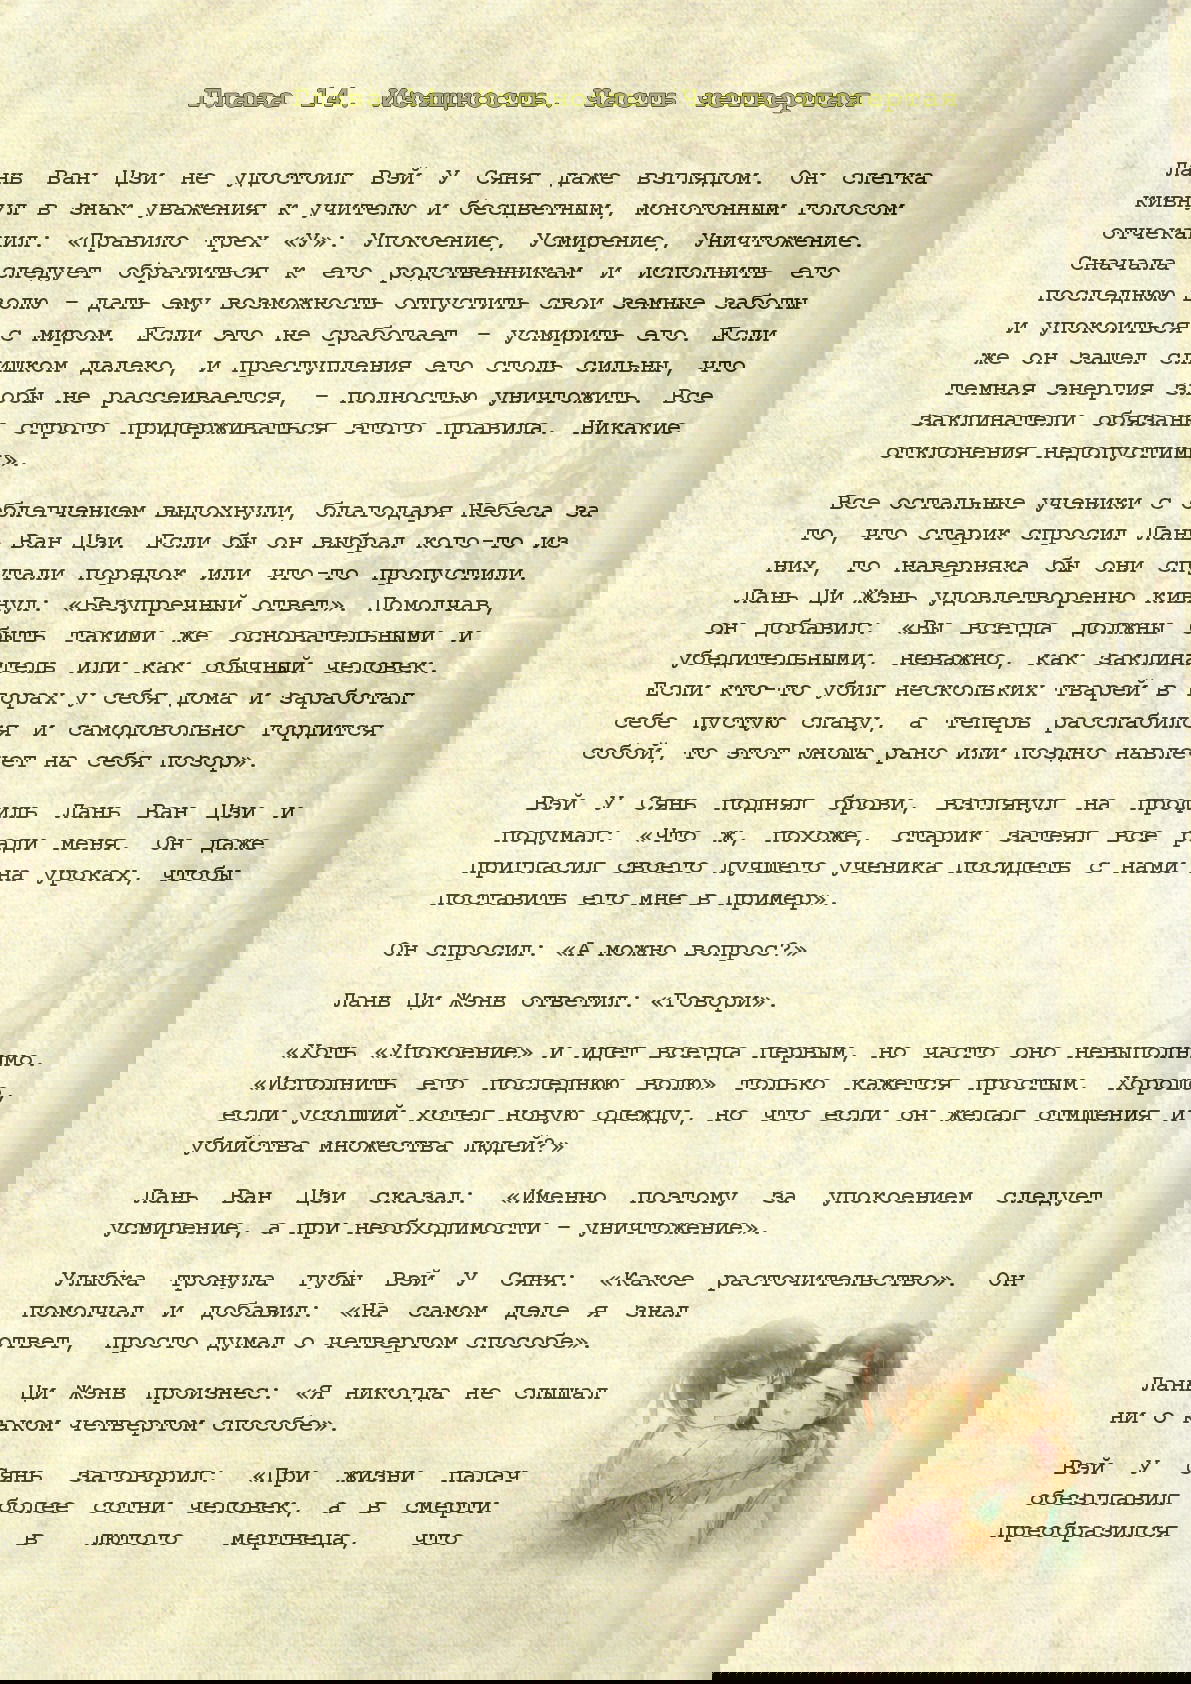 Глава 14. Изящность. Часть четвертая
Лань Ван Цзи не удостоил Вэй У Сяня даже взглядом. Он слегка
кивнул в знак уважения к учителю и бесцветным, монотонным голосом
отчеканил: «Правило трех «У»: Упокоение, Усмирение, Уничтожение.
Сначала следует обратиться к его родственникам и исполнить его
последнюю волю – дать ему возможность отпустить свои земные заботы
и упокоиться с миром. Если это не сработает – усмирить его. Если
же он зашел слишком далеко, и преступления его столь сильны, что
темная энергия злобы не рассеивается, – полностью уничтожить. Все
заклинатели обязаны строго придерживаться этого правила. Никакие
отклонения недопустимы».
Все остальные ученики с облегчением выдохнули, благодаря Небеса за
то, что старик спросил Лань Ван Цзи. Если бы он выбрал кого-то из
них, то наверняка бы они спутали порядок или что-то пропустили.
Лань Ци Жэнь удовлетворенно кивнул: «Безупречный ответ». Помолчав,
он добавил: «Вы всегда должны быть такими же основательными и
убедительными, неважно, как заклинатель или как обычный человек.
Если кто-то убил нескольких тварей в горах у себя дома и заработал
себе пустую славу, а теперь расслабился и самодовольно гордится
собой, то этот юноша рано или поздно навлечет на себя позор».
Вэй У Сянь поднял брови, взглянул на профиль Лань Ван Цзи и
подумал: «Что ж, похоже, старик затеял все ради меня. Он даже
пригласил своего лучшего ученика посидеть с нами на уроках, чтобы
поставить его мне в пример».
Он спросил: «А можно вопрос?»
Лань Ци Жэнь ответил: «Говори».
«Хоть «Упокоение» и идет всегда первым, но часто оно невыполнимо.
«Исполнить его последнюю волю» только кажется простым. Хорошо,
если усопший хотел новую одежду, но что если он желал отмщения и
убийства множества людей?»
Лань Ван Цзи сказал: «Именно поэтому за упокоением следует
усмирение, а при необходимости – уничтожение».
Улыбка тронула губы Вэй У Сяня: «Какое расточительство». Он
помолчал и добавил: «На самом деле я знал
ответ, просто думал о четвертом способе».
Лань Ци Жэнь произнес: «Я никогда не слышал
ни о каком четвертом способе».
Вэй У Сянь заговорил: «При жизни палач
обезглавил более сотни человек, а в смерти
преобразился в лютого мертвеца, что